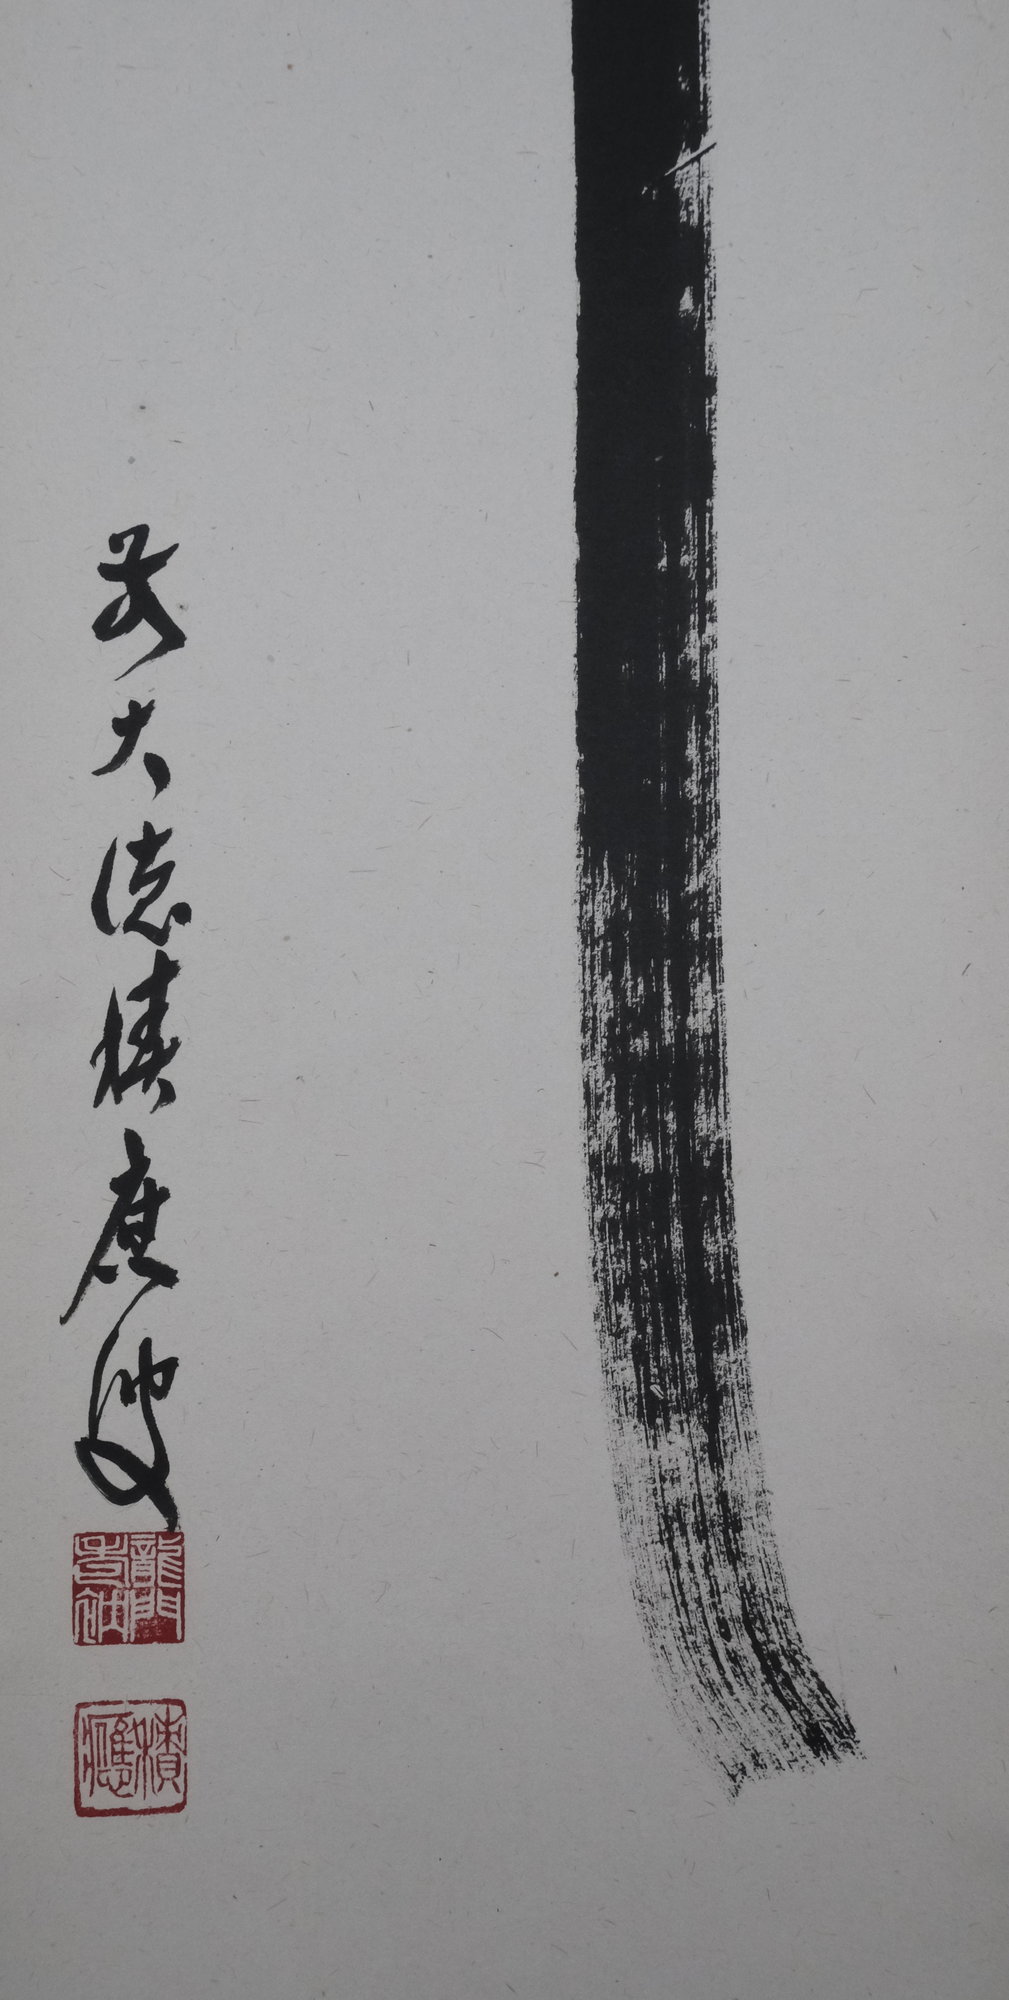 前大徳積應叟
龍門
老衲
積
應